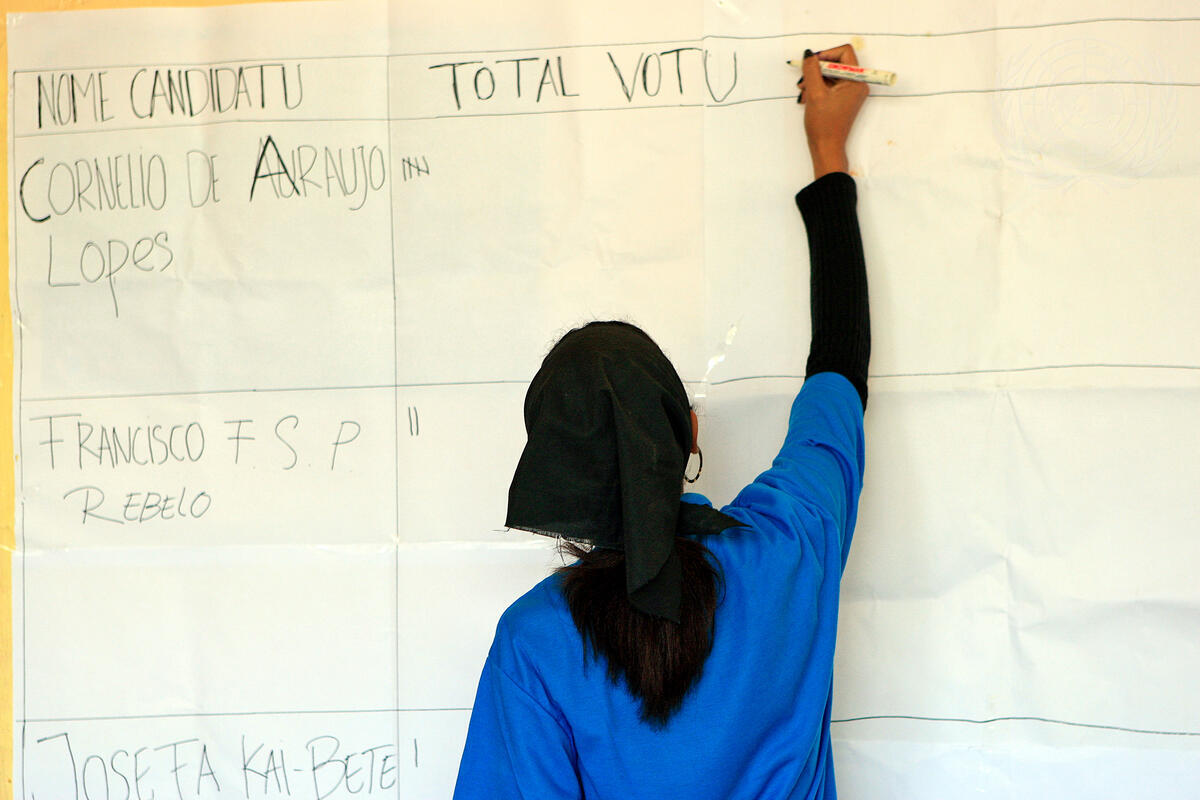 NOME CANDIDATU TOTAL VOTU
CORNELIO DE ARAUJO
LOPES
FRANCISCO F. S. P
REBELO
JOSEFA KAI-BETE